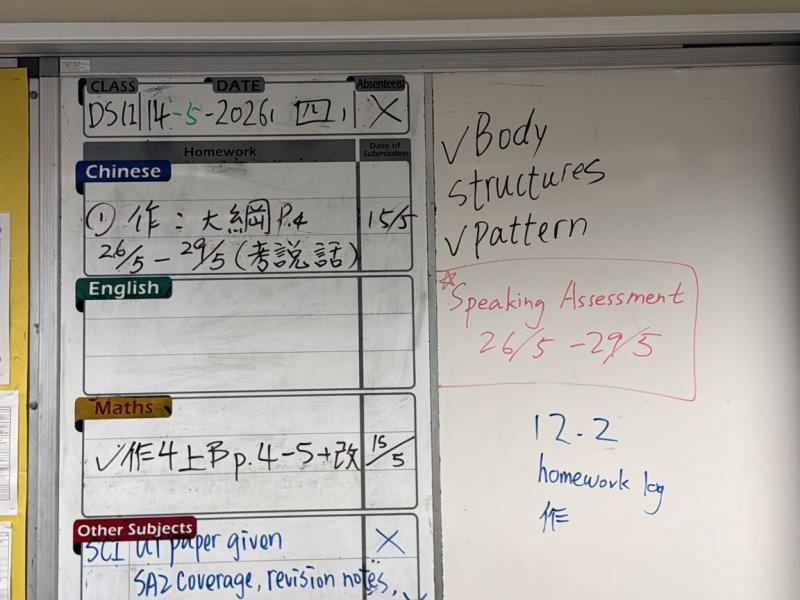 CLASS DATE Absentee(s)
14-5-2026, 四, X
Homework Date of Submission
Chinese
① 作：大綱 P.4 15/5
26/5 - 29/5 (考說話)
English
Maths
✓作4上B p.4-5+改 15/5
Other Subjects
SCI UT paper given X
SA2 coverage, revision notes,
✓Body
structures
✓pattern
*Speaking Assessment
26/5 - 29/5
12.2
homework log
作